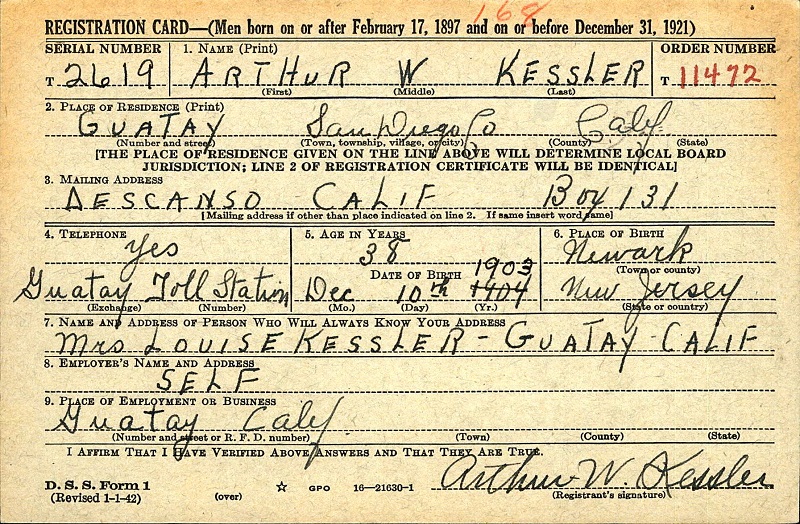 168
REGISTRATION CARD—(Men born on or after February 17, 1897 and on or before December 31, 1921)
SERIAL NUMBER 1. NAME (Print) ORDER NUMBER
T 2619 ARTHUR W KESSLER T 11472
(First) (Middle) (Last)
2. PLACE OF RESIDENCE (Print)
GUATAY San Diego Co Calif.
(Number and street) (Town, township, village, or city) (County) (State)
[THE PLACE OF RESIDENCE GIVEN ON THE LINE ABOVE WILL DETERMINE LOCAL BOARD
JURISDICTION; LINE 2 OF REGISTRATION CERTIFICATE WILL BE IDENTICAL]
3. MAILING ADDRESS
DESCANSO CALIF Box 131
[Mailing address if other than place indicated on line 2. If same insert word same]
4. TELEPHONE 5. AGE IN YEARS 6. PLACE OF BIRTH
yes 38 Newark
DATE OF BIRTH 1903 (Town or county)
Guatay Toll Station Dec 10th 1904 New Jersey
(Exchange) (Number) (Mo.) (Day) (Yr.) (State or country)
7. NAME AND ADDRESS OF PERSON WHO WILL ALWAYS KNOW YOUR ADDRESS
Mrs LOUISE KESSLER - GUATAY - CALIF
8. EMPLOYER'S NAME AND ADDRESS
SELF
9. PLACE OF EMPLOYMENT OR BUSINESS
Guatay Calif.
(Number and street or R. F. D. number) (Town) (County) (State)
I AFFIRM THAT I HAVE VERIFIED ABOVE ANSWERS AND THAT THEY ARE TRUE.
D. S. S. Form 1 Arthur W. Kessler
(Revised 1-1-42) (over) ☆ GPO 16—21630-1 (Registrant's signature)